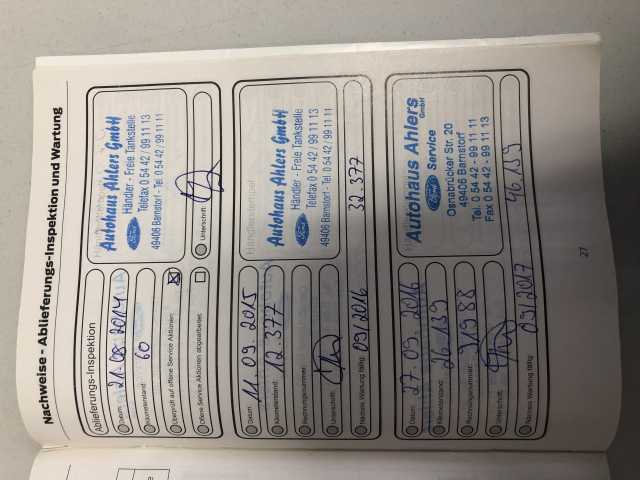 Nachweise - Ablieferungs-Inspektion und Wartung
Ablieferungs-Inspektion
Datum: 21-08-2014
Kilometerstand: 60
Überprüft auf offene Service Aktionen:
Offene Service Aktionen abgearbeitet:
Autohaus Ahlers GmbH
Ford Händler - Freie Tankstelle
Telefax 0 54 42 / 99 11 13
49406 Barnstorf - Tel. 0 54 42 / 99 11 11
Unterschrift:
Datum: 11.09.2015
Kilometerstand: 12.377
Rechnungsnummer:
Unterschrift:
Nächste Wartung fällig: 09/2016 32.377
Händlerstempel
Autohaus Ahlers GmbH
Ford Händler - Freie Tankstelle
Telefax 0 54 42 / 99 11 13
49406 Barnstorf - Tel. 0 54 42 / 99 11 11
Datum: 27.09.2016
Kilometerstand: 26.139
Rechnungsnummer:
Unterschrift:
Nächste Wartung fällig: 09/2017 46.139
Autohaus Ahlers
GmbH
Ford Service
Osnabrücker Str. 20
49406 Barnstorf
Tel. 0 54 42 - 99 11 11
Fax 0 54 42 - 99 11 13
27